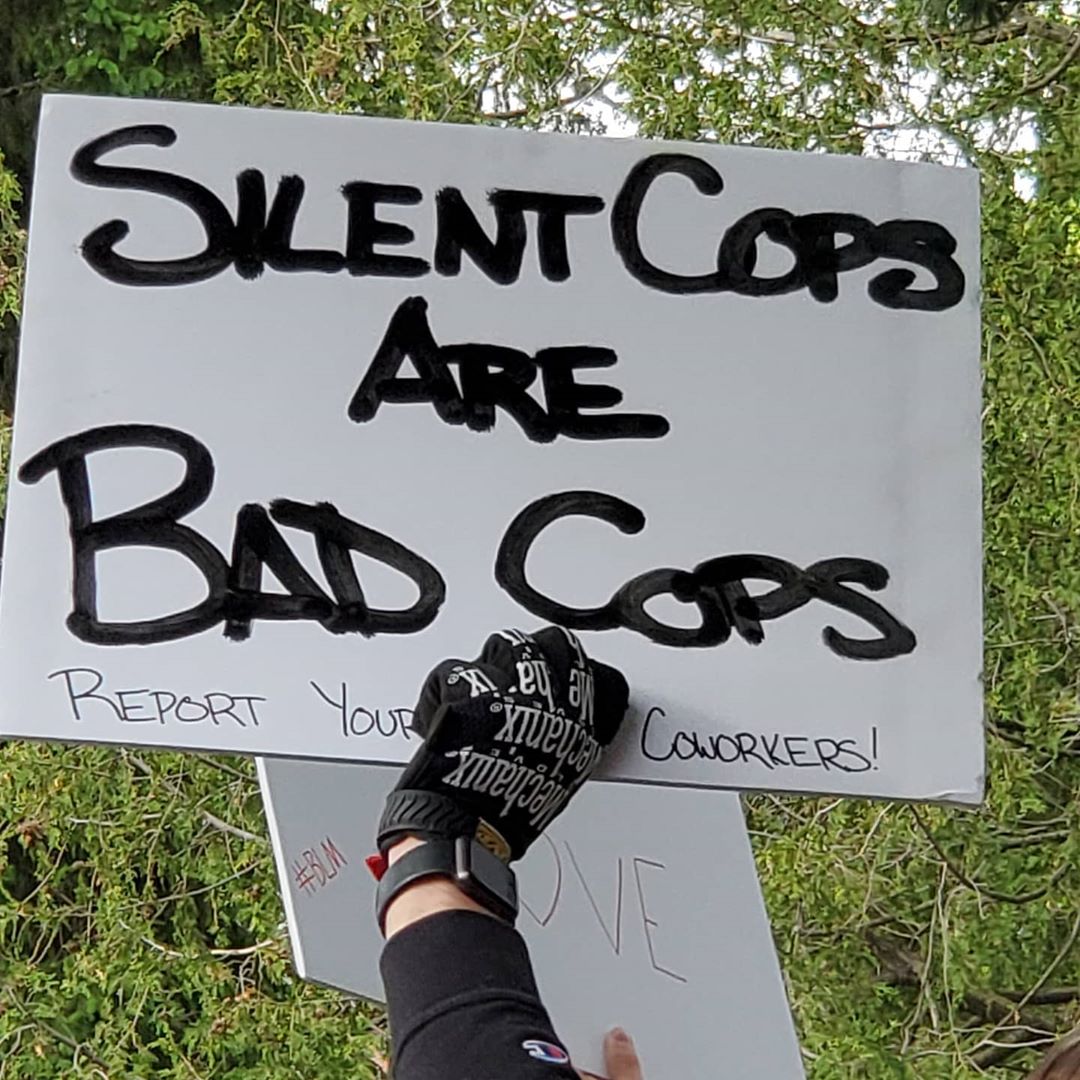 SILENT COPS
ARE
BAD COPS
REPORT YOUR COWORKERS!
Mechanix
Mechanix
#BLM
OVE